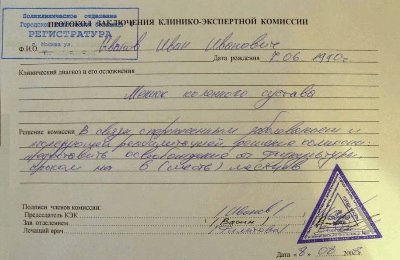 Поликлиническое отделение
Городской
РЕГИСТРАТУРА
г. Москва ул.
ПРОТОКОЛ ЗАКЛЮЧЕНИЯ КЛИНИКО-ЭКСПЕРТНОЙ КОМИССИИ
Ф.И.О. Иванов Иван Иванович
Дата рождения 8.06.1990г.
Клинический диагноз и его осложнения
коленного сустава
Решение комиссии В связи с перенесенным заболеванием и
последующей реабилитацией решением комиссии:
предоставить освобождение от физкультуры
сроком на 6 (шесть) месяцев
Подписи членов комиссии:
Председатель КЭК /Иванов/
Зав. отделением
Лечащий врач /Филатова/
Дата